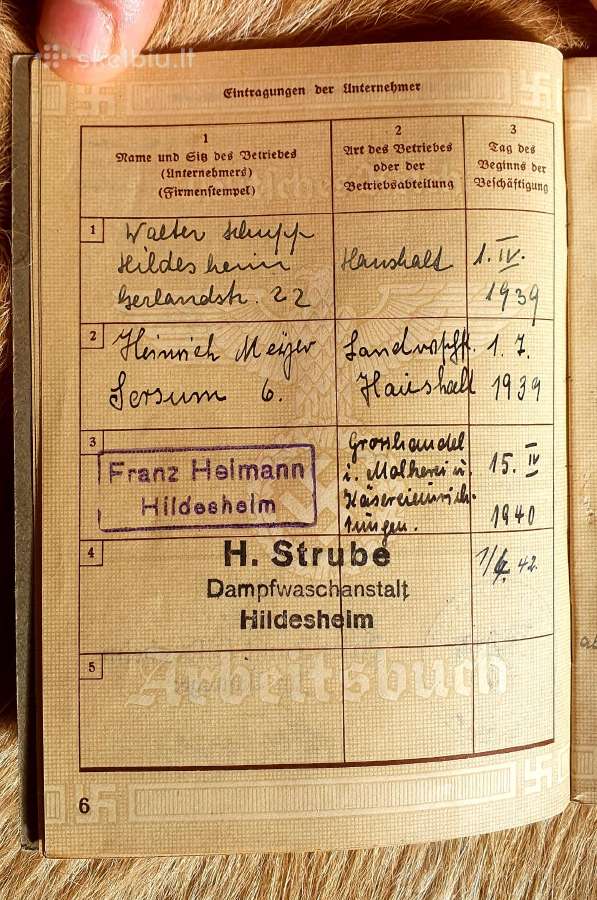 skelbiu.lt
Eintragungen der Unternehmer
1
Name und Sitz des Betriebes
(Unternehmers)
(Firmenstempel)
2
Art des Betriebes
oder der
Betriebsabteilung
3
Tag des
Beginns der
Beschäftigung
1
Walter Schupp
Hildesheim
Gerlandstr. 22
Haushalt
1. IV.
1939
2
Heinrich Meyer
Sorsum 6.
Landwirtschft.
Haushalt
1. 7.
1939
3
Franz Heimann
Hildesheim
Grosshandel
i. Molkerei u.
Käsereieinrich-
tungen.
15. IV
1940
4
H. Strube
Dampfwaschanstalt
Hildesheim
42
5
Arbeitsbuch
6